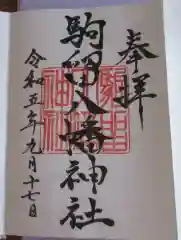 奉拝
駒留八幡神社
令和五年九月十七日